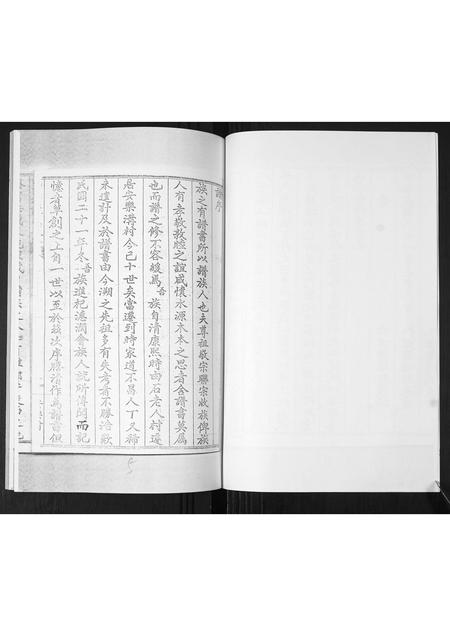 譜序
族之有譜書所以譜族人也夫尊祖敬宗聯宗收族俾族
人有孝敬敦睦之誼咸懷水源木本之思者舍譜書莫屬
也而譜之修不容緩焉吾族自清康熙時由石老人村遷
居安樂溝村今已十世矣當遷到時家道不昌人丁又稀
未遑計及於譜書由今溯之先祖多有失考者不勝浩歎
民國二十一年冬吾族進杞滬澗會族人說所傳聞而記
憶者草創之上自一世以至於茲次序勝清作為譜書但